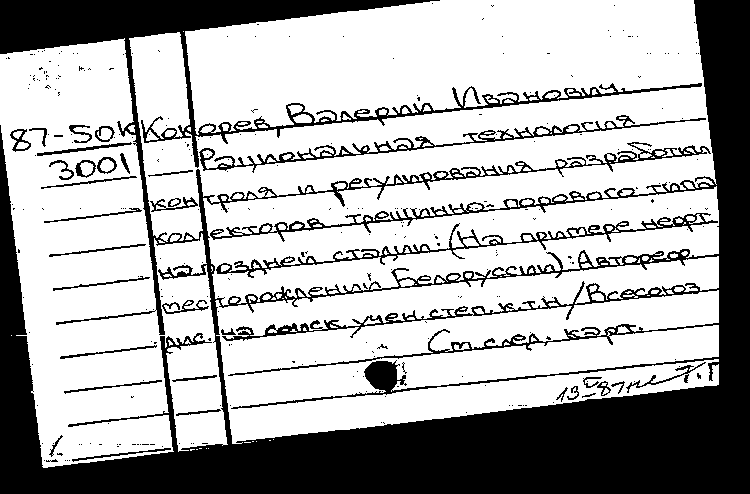 87-50К Кокорев, Валерий Иванович.
3001 Рациональная технология
контроля и регулирования разработки
коллекторов трещинно-порового типа
на поздней стадии: (На примере нефт.
месторождений Белоруссии): Автореф.
дис. на соиск. учен. степ. к.т.н / Всесоюз
См. след. карт.
13 V 87